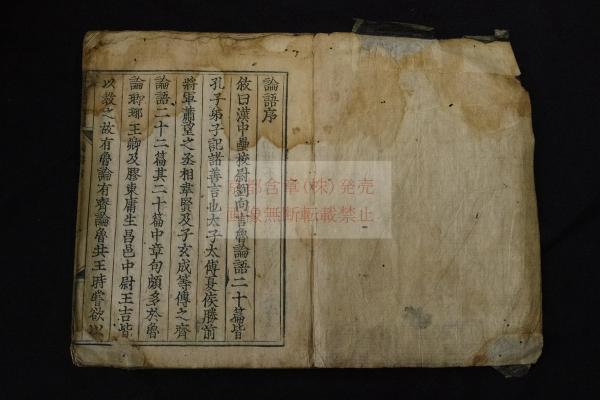 論語序
敘曰漢中壘校尉劉向言魯論語二十篇皆
孔子弟子記諸善言也太子太傅夏侯勝前
將軍蕭望之丞相韋賢及子玄成等傳之齊
論語二十二篇其二十篇中章句頗多於魯
論瑯琊王卿及膠東庸生昌邑中尉王吉皆
以教之故有魯論有齊論魯共王時嘗欲以
京都含章(株)発売
画像無断転載禁止